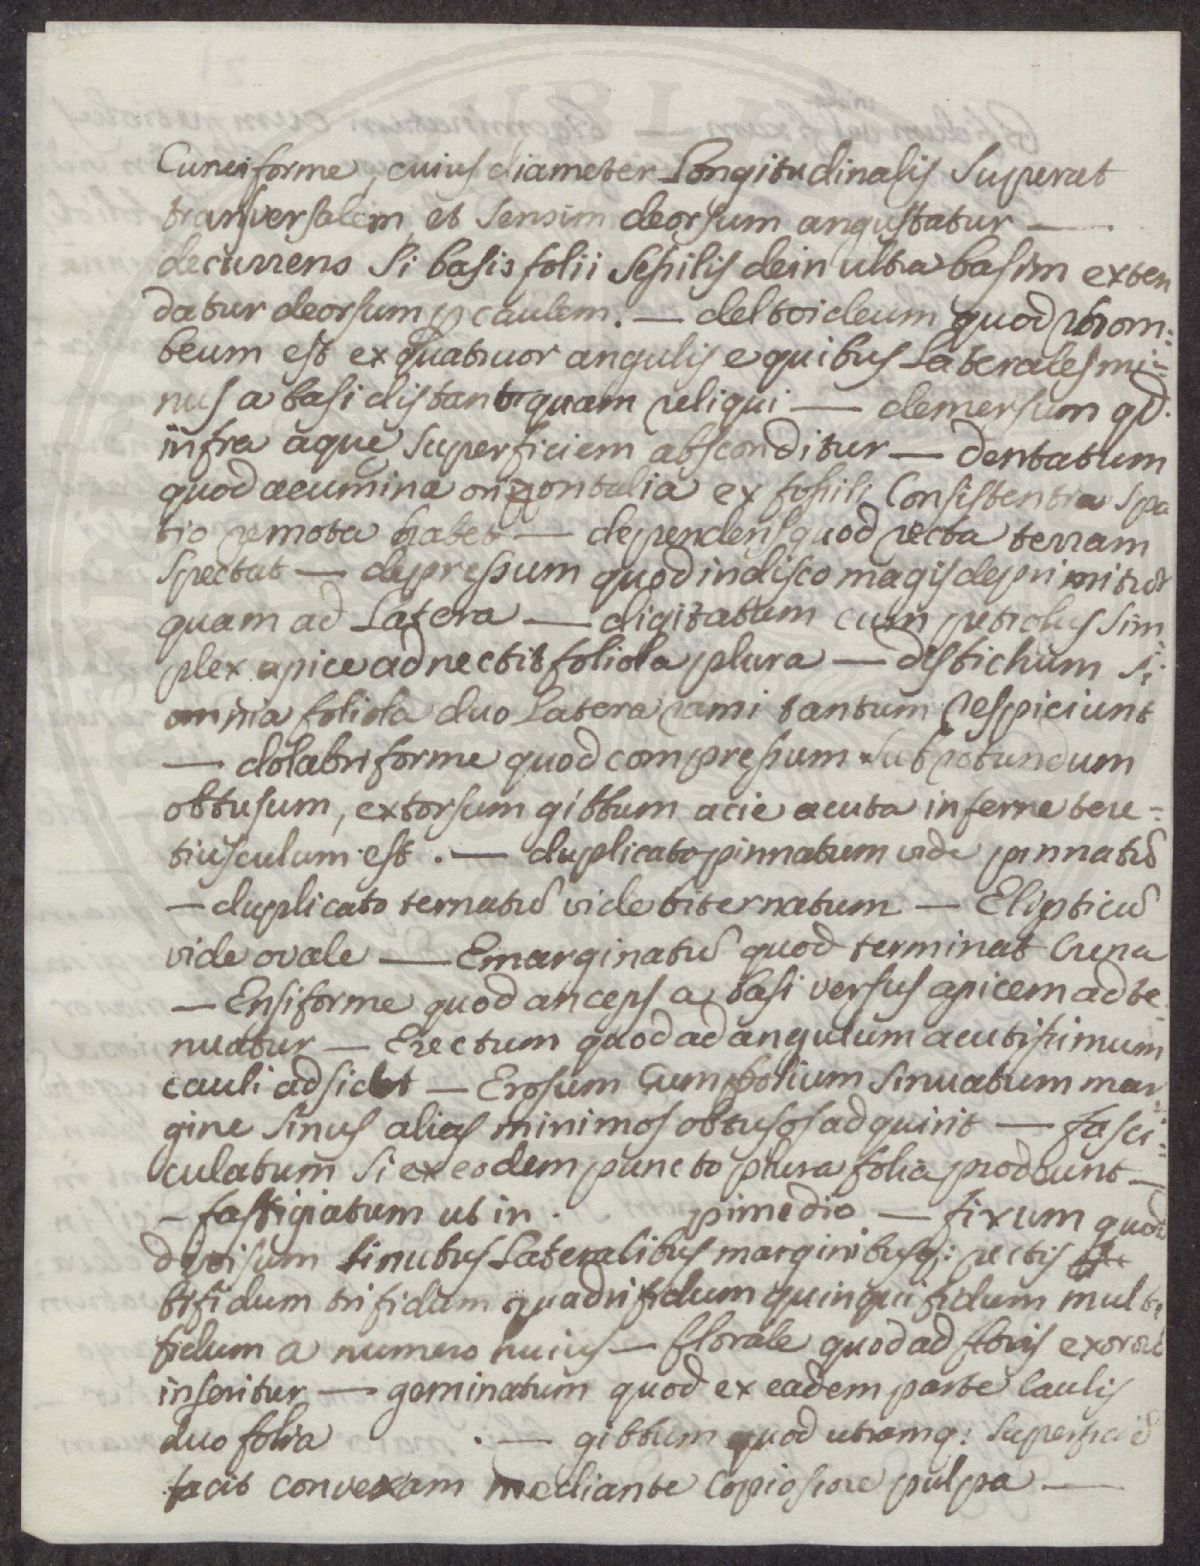 Cuneiforme, cuius diameter Longitudinalis superat
tranversalem et sensim deorsum angustatur —
decurrens si basis folii sessilis dein ultra basim exten
datur deorsum p caulem. — deltoideum quod rhom:
beum est ex quatuor angulis e quibus Laterales mi=
nus a basi distant quam reliqui — demersum qd.
infra aque superficiem absconditur — dentatum
quod acumina orizontalia ex fossili Consistentia spa
tio remota habet — dependens quod recta terram
spectat — depressum quod in disco magis deprimitur
quam ad Latera — digitatum cum petiolus sim
plex apice adnectit foliola plura — distichum si
omnia foliola duo Latera rami tantum respiciunt
— dolabriforme quod compressum subrotundum
obtusum, extorsum gibbum acie acuta inferne tere=
tiusculum est. — duplicato pinnatum vide pinnatū
— duplicato ternatū vide biternatum — Elipticū
vide ovale — Emarginatū quod terminat Crena
— Ensiforme quod anceps a basi versus apicem adte
nuatur — Erectum quod ad angulum acutissimum
cauli adsidet — Erosum Cum folium sinuatum mar
gine sinus alias minimos obtusos adquirit — fasci=
culatum si ex eodem puncto plura folia prodeunt —
– fastigiatum ut in . pimedio — fixum quod
divisum sinubus Lateralibus marginibusq: rectis
bifidum trifidum quadrifidum quinquifidum multi
fidum a numero huius — florale quod ad floris exortū
inseritur — geminatum quod ex eadem parte Caulis
duo folia . — gibbum quod utramq: superficiē
facit convexam mediante Copiosiore pulpa —